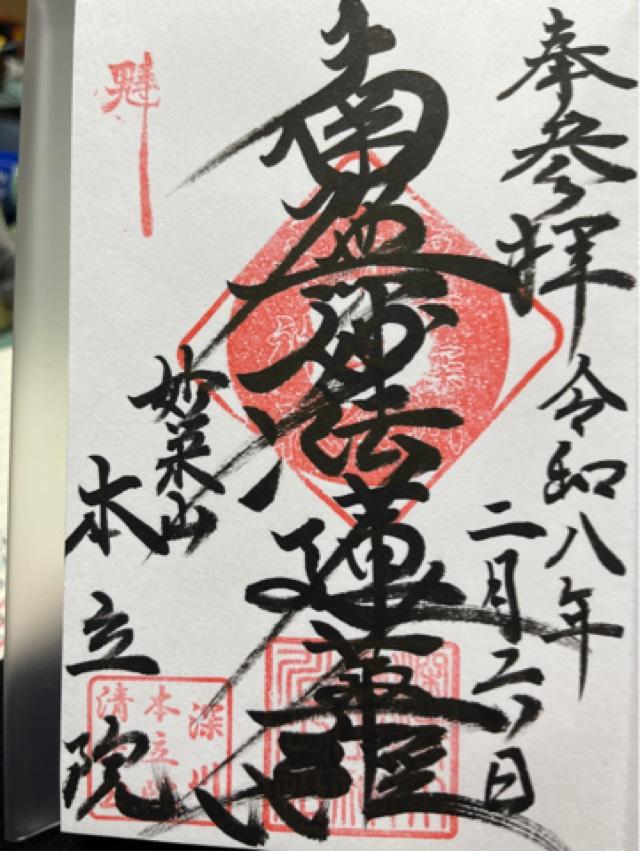 奉参拝 令和八年
二月六日
南無妙法蓮華経
妙栄山
本立院
深川
本立院